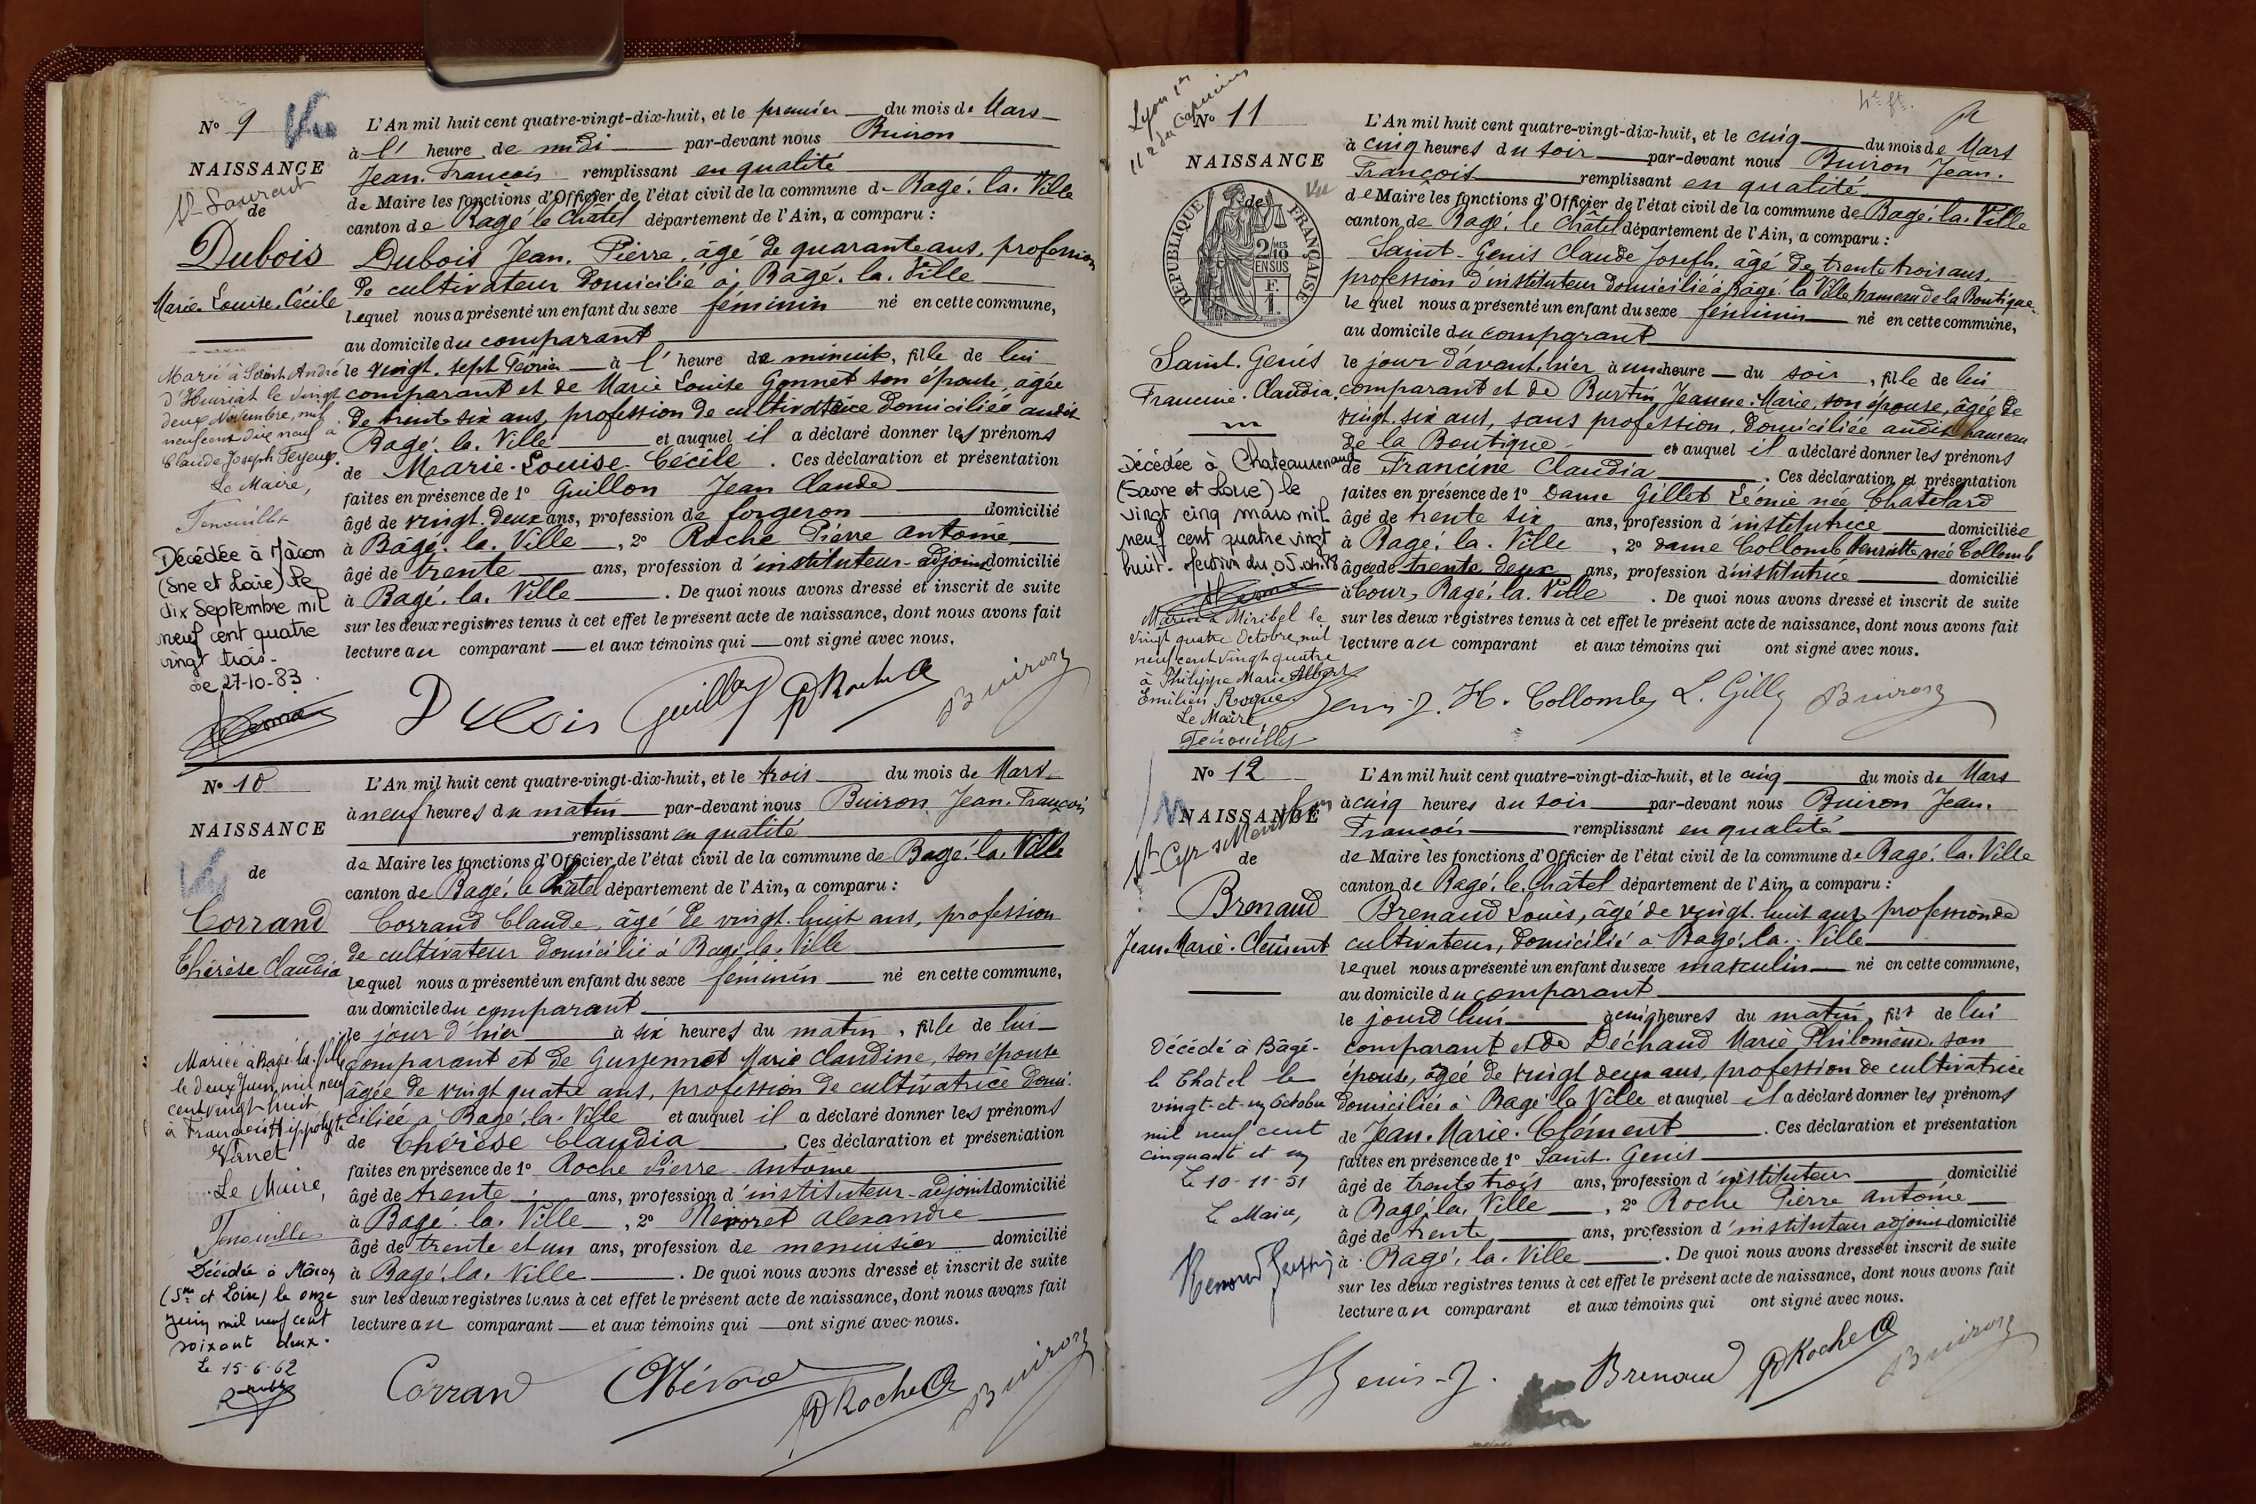 No 9
Vu
NAISSANCE
St Laurent
de
Dubois
Marie-Louise-Cécile
Marié à Saint André
d'Huiriat le vingt
deux Novembre, mil
neuf cent dix neuf à
Claude Joseph
Le Maire,
Fenouillet
Décédée à Mâcon
(Sne et Loire) le
dix Septembre mil
neuf cent quatre
vingt trois.
Le 27-10-83.
L'An mil huit cent quatre-vingt-dix-huit, et le premier du mois de Mars
à l' heure de midi par-devant nous Buiron
Jean-François remplissant en qualité
de Maire les fonctions d'Officier de l'état civil de la commune de Bagé-la-Ville
canton de Bagé le Châtel département de l'Ain, a comparu :
Dubois Jean-Pierre, âgé de quarante ans, profession
de cultivateur domicilié à Bâgé-la-Ville
lequel nous a présenté un enfant du sexe féminin né en cette commune,
au domicile du comparant
le vingt-sept Février à l' heure de minuit, fille de lui
comparant et de Marie Louise Gonnet son épouse, âgée
de trente six ans, profession de cultivatrice domiciliée audit
Bagé-la-Ville et auquel il a déclaré donner les prénoms
de Marie-Louise-Cécile. Ces déclaration et présentation
faites en présence de 1º Guillon Jean Claude
âgé de vingt-deux ans, profession de forgeron domicilié
à Bâgé-la-Ville, 2º Roche Pierre Antoine
âgé de trente ans, profession d'instituteur-adjoint domicilié
à Bagé-la-Ville. De quoi nous avons dressé et inscrit de suite
sur les deux registres tenus à cet effet le présent acte de naissance, dont nous avons fait
lecture au comparant et aux témoins qui ont signé avec nous.
Dubois Guillon P Roche A Buiron
No 10
NAISSANCE
Vu
de
Corrand
Thérèse Claudia
Mariée à Bagé-la-Ville
le deux Juin mil neuf
cent vingt-huit
à François Hippolyte
Virnet
Le Maire,
Fenouillet
Décédée à Mâcon
(Sne et Loire) le onze
juin mil neuf cent
soixante deux.
Le 15-6-62
L'An mil huit cent quatre-vingt-dix-huit, et le trois du mois de Mars
à neuf heures du matin par-devant nous Buiron Jean-François
remplissant en qualité
de Maire les fonctions d'Officier de l'état civil de la commune de Bagé-la-Ville
canton de Bagé-le Châtel département de l'Ain, a comparu :
Corrand Claude, âgé de vingt-huit ans, profession
de cultivateur domicilié à Bagé-la-Ville
lequel nous a présenté un enfant du sexe féminin né en cette commune,
au domicile du comparant
le jour d'hier à six heures du matin, fille de lui
comparant et de Guyennet Marie Claudine, son épouse
âgée de vingt quatre ans, profession de cultivatrice domi-
ciliée à Bagé-la-Ville et auquel il a déclaré donner les prénoms
de Thérèse Claudia. Ces déclaration et présentation
faites en présence de 1º Roche Pierre-Antoine
âgé de trente ans, profession d'instituteur-adjoint domicilié
à Bagé-la-Ville, 2º Névoret Alexandre
âgé de trente et un ans, profession de menuisier domicilié
à Bagé-la-Ville. De quoi nous avons dressé et inscrit de suite
sur les deux registres tenus à cet effet le présent acte de naissance, dont nous avons fait
lecture au comparant et aux témoins qui ont signé avec nous.
Corrand P Roche A Buiron
Lyon 1er
11 r du Capucins
No 11
NAISSANCE
RÉPUBLIQUE FRANÇAISE
de
2/10 MES
EN SUS
F.
1.
Vu
Saint-Genis
Francine-Claudia
Décédée à Chateaurenaud
(Saone et Loire) le
vingt cinq mars mil
neuf cent quatre vingt
huit.
Mariée à Miribel le
vingt quatre Octobre mil
neuf cent vingt quatre
à Philippe Marie Albert
Emilien Roque
Le Maire
Fenouillet
L'An mil huit cent quatre-vingt-dix-huit, et le cinq du mois de Mars
à cinq heures du soir par-devant nous Buiron Jean-
François remplissant en qualité
de Maire les fonctions d'Officier de l'état civil de la commune de Bagé-la-Ville
canton de Bagé-le Châtel département de l'Ain, a comparu :
Saint-Genis Claude Joseph, âgé de trente trois ans,
profession d'instituteur domicilié à Bâgé-la Ville hameau de la Boutique
lequel nous a présenté un enfant du sexe féminin né en cette commune,
au domicile du comparant
le jour d'avant-hier à une heure du soir, fille de lui
comparant et de Burtin Jeanne-Marie, son épouse, âgée de
vingt-six ans, sans profession, domiciliée audit hameau
de la Boutique et auquel il a déclaré donner les prénoms
de Francine Claudia. Ces déclaration et présentation
faites en présence de 1º Dame Gillet Léonie née Chatelard
âgé de trente six ans, profession d'institutrice domiciliée
à Bagé-la-Ville, 2º dame Collomb Henriette née Collomb
âgée de trente deux ans, profession d'institutrice domicilié
à Cour, Bagé-la-Ville. De quoi nous avons dressé et inscrit de suite
sur les deux registres tenus à cet effet le présent acte de naissance, dont nous avons fait
lecture au comparant et aux témoins qui ont signé avec nous.
H. Collomb L. Gillet Buiron
No 12
NAISSANCE
St Cyr s Menthon
de
Brenaud
Jean-Marie-Clément
Décédé à Bâgé-
le Chatel le
vingt-et-un Octobre
mil neuf cent
cinquante et un
Le 10-11-51
Le Maire,
L'An mil huit cent quatre-vingt-dix-huit, et le cinq du mois de Mars
à cinq heures du soir par-devant nous Buiron Jean-
François remplissant en qualité
de Maire les fonctions d'Officier de l'état civil de la commune de Bagé-la-Ville
canton de Bagé-le-Châtel département de l'Ain, a comparu :
Brenaud Louis, âgé de vingt-huit ans profession de
cultivateur, domicilié à Bagé-la-Ville
lequel nous a présenté un enfant du sexe masculin né en cette commune,
au domicile du comparant
le jourd'hui à cinq heures du matin, fils de lui
comparant et de Déchaud Marie Philomène, son
épouse, âgée de vingt deux ans, profession de cultivatrice
domiciliée à Bagé-la Ville et auquel il a déclaré donner les prénoms
de Jean-Marie-Clément. Ces déclaration et présentation
faites en présence de 1º Saint-Genis
âgé de trente trois ans, profession d'instituteur domicilié
à Bagé-la-Ville, 2º Roche Pierre Antoine
âgé de trente ans, profession d'instituteur adjoint domicilié
à Bagé-la-Ville. De quoi nous avons dressé et inscrit de suite
sur les deux registres tenus à cet effet le présent acte de naissance, dont nous avons fait
lecture au comparant et aux témoins qui ont signé avec nous.
Brenaud P Roche A Buiron